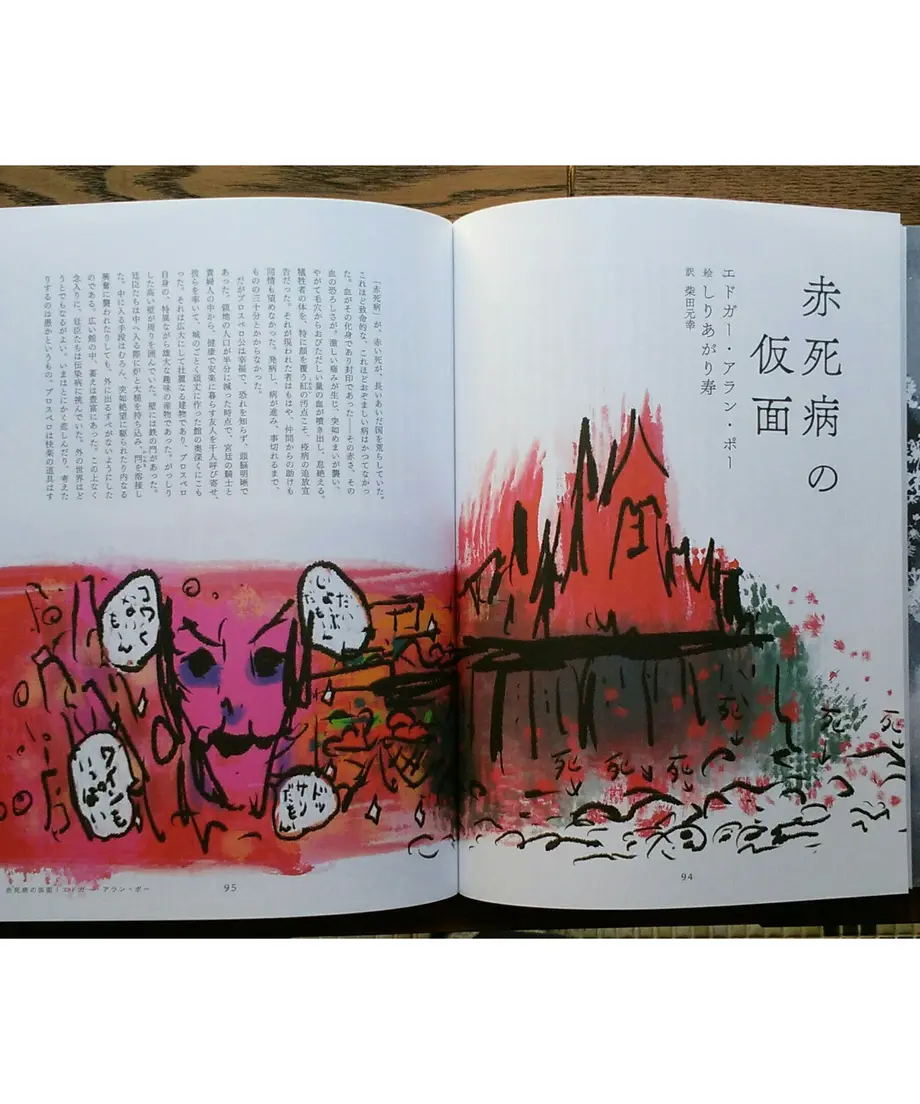 赤死病の
仮面
エドガー・アラン・ポー
絵 しりあがり寿
訳 柴田元幸
死
死
死
死
死
死
94
「赤死病」が、赤い死が、長いあいだ国を荒らしていた。
これほど致命的な、これほどおぞましい病はかつてなかっ
た。血がその化身であり封印であった――その赤さ、その
血の恐ろしさが。激しい痛みが生じ、突如めまいが襲い、
やがて毛穴からおびただしい量の血が噴き出し、息絶える。
犠牲者の体を、特に顔を覆う紅の汚点こそ、疫病の追放宣
告だった。それが現われた者はもはや、仲間からの助けも
同情も望めなかった。発病し、病が進み、事切れるまで、
ものの三十分とかからなかった。
だがプロスペロ公は幸福で、恐れを知らず、頭脳明晰で
あった。領地の人口が半分に減った時点で、宮廷の騎士と
貴婦人の中から、健康で安楽に暮らす友人を千人呼び寄せ、
彼らを率いて、城のごとく頑丈に作った館の奥深くにこも
った。それは広大にして壮麗なる建物であり、プロスペロ
自身の、特異ながら雄大な趣味の産物であった。がっしり
した高い壁が周りを囲んでいた。壁には鉄の門があった。
廷臣たちは中へ入る際に炉と大槌を持ち込み、閂を溶接し
た。中に入る手段はむろん、突如絶望に駆られたり内なる
興奮に襲われたりしても、外に出るすべがないようにした
のである。広い館の中、蓄えは豊富にあった。この上なく
念入りに、廷臣たちは伝染病に挑んでいた。外の世界はど
うとでもなるがよい。いまはとにかく悲しんだり、考えた
りするのは愚かというもの。プロスペロは快楽の道具はす
だい
じょー
ぶ
だもーん
コワく
ないもーん
ワインも
いっぱい
ドッ
サリ
だもん
95
赤死病の仮面|エドガー・アラン・ポー